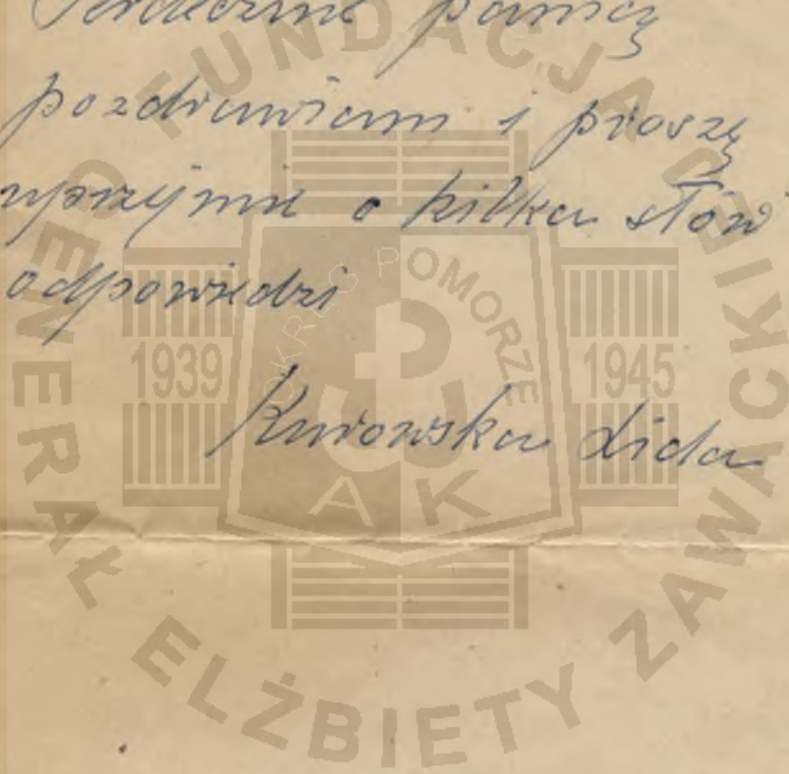 Serdecznie panią
pozdrawiam i proszę
uprzejmie o kilka słów
odpowiedzi
Kurowska Lida
FUNDACJA GENERAŁ ELŻBIETY ZAWACKIEJ
OKRĘG POMORZE
1939
1945
AK